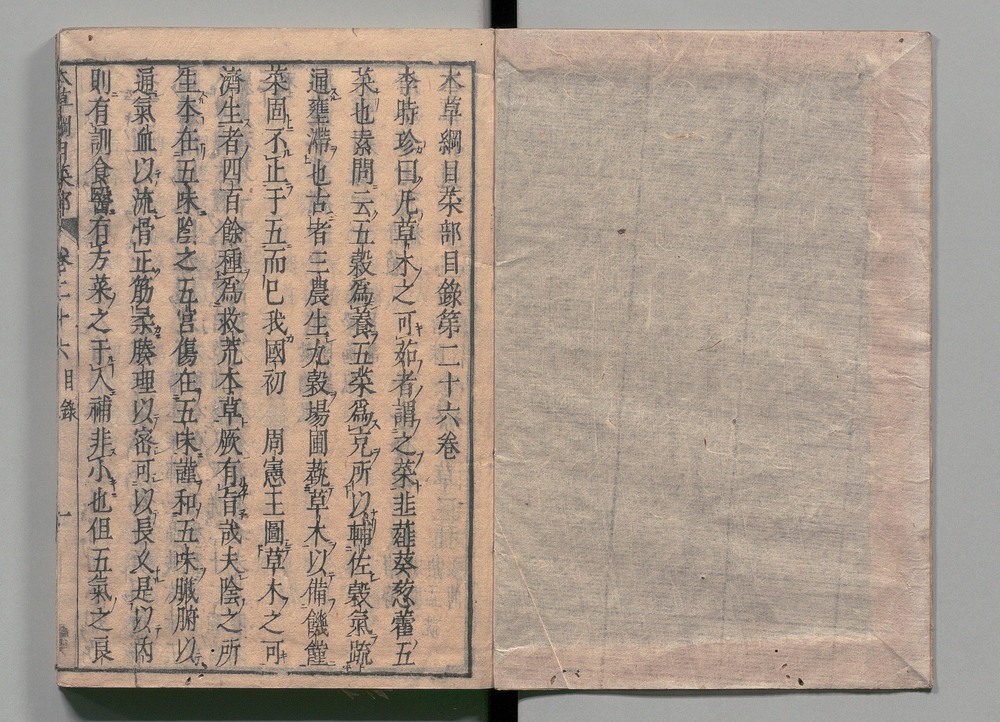 本草綱目菜部目錄第二十六卷
李時珍曰凡草木之可茹者謂之菜韭薤葵葱藿五
菜也素問云五穀爲養五菜爲充所以輔佐穀氣疏
通壅滯也古者三農生九穀場圃蓺草木以備饑饉
菜固不止于五而已我國初 周憲王圖草木之可
濟生者四百餘種爲救荒本草厥有旨哉夫陰之所
生本在五味陰之五宮傷在五味謹和五味臟腑以
通氣血以流骨正筋柔腠理以密可以長久是以內
則有訓食醫有方菜之于人補非小也但五氣之良
本草綱目菜部 卷二十六目錄 一